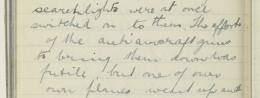 searchlights were at once
switched on to them. The efforts
of the antiaircraft guns
to bring them down was
futile, but one of our
own planes went up and